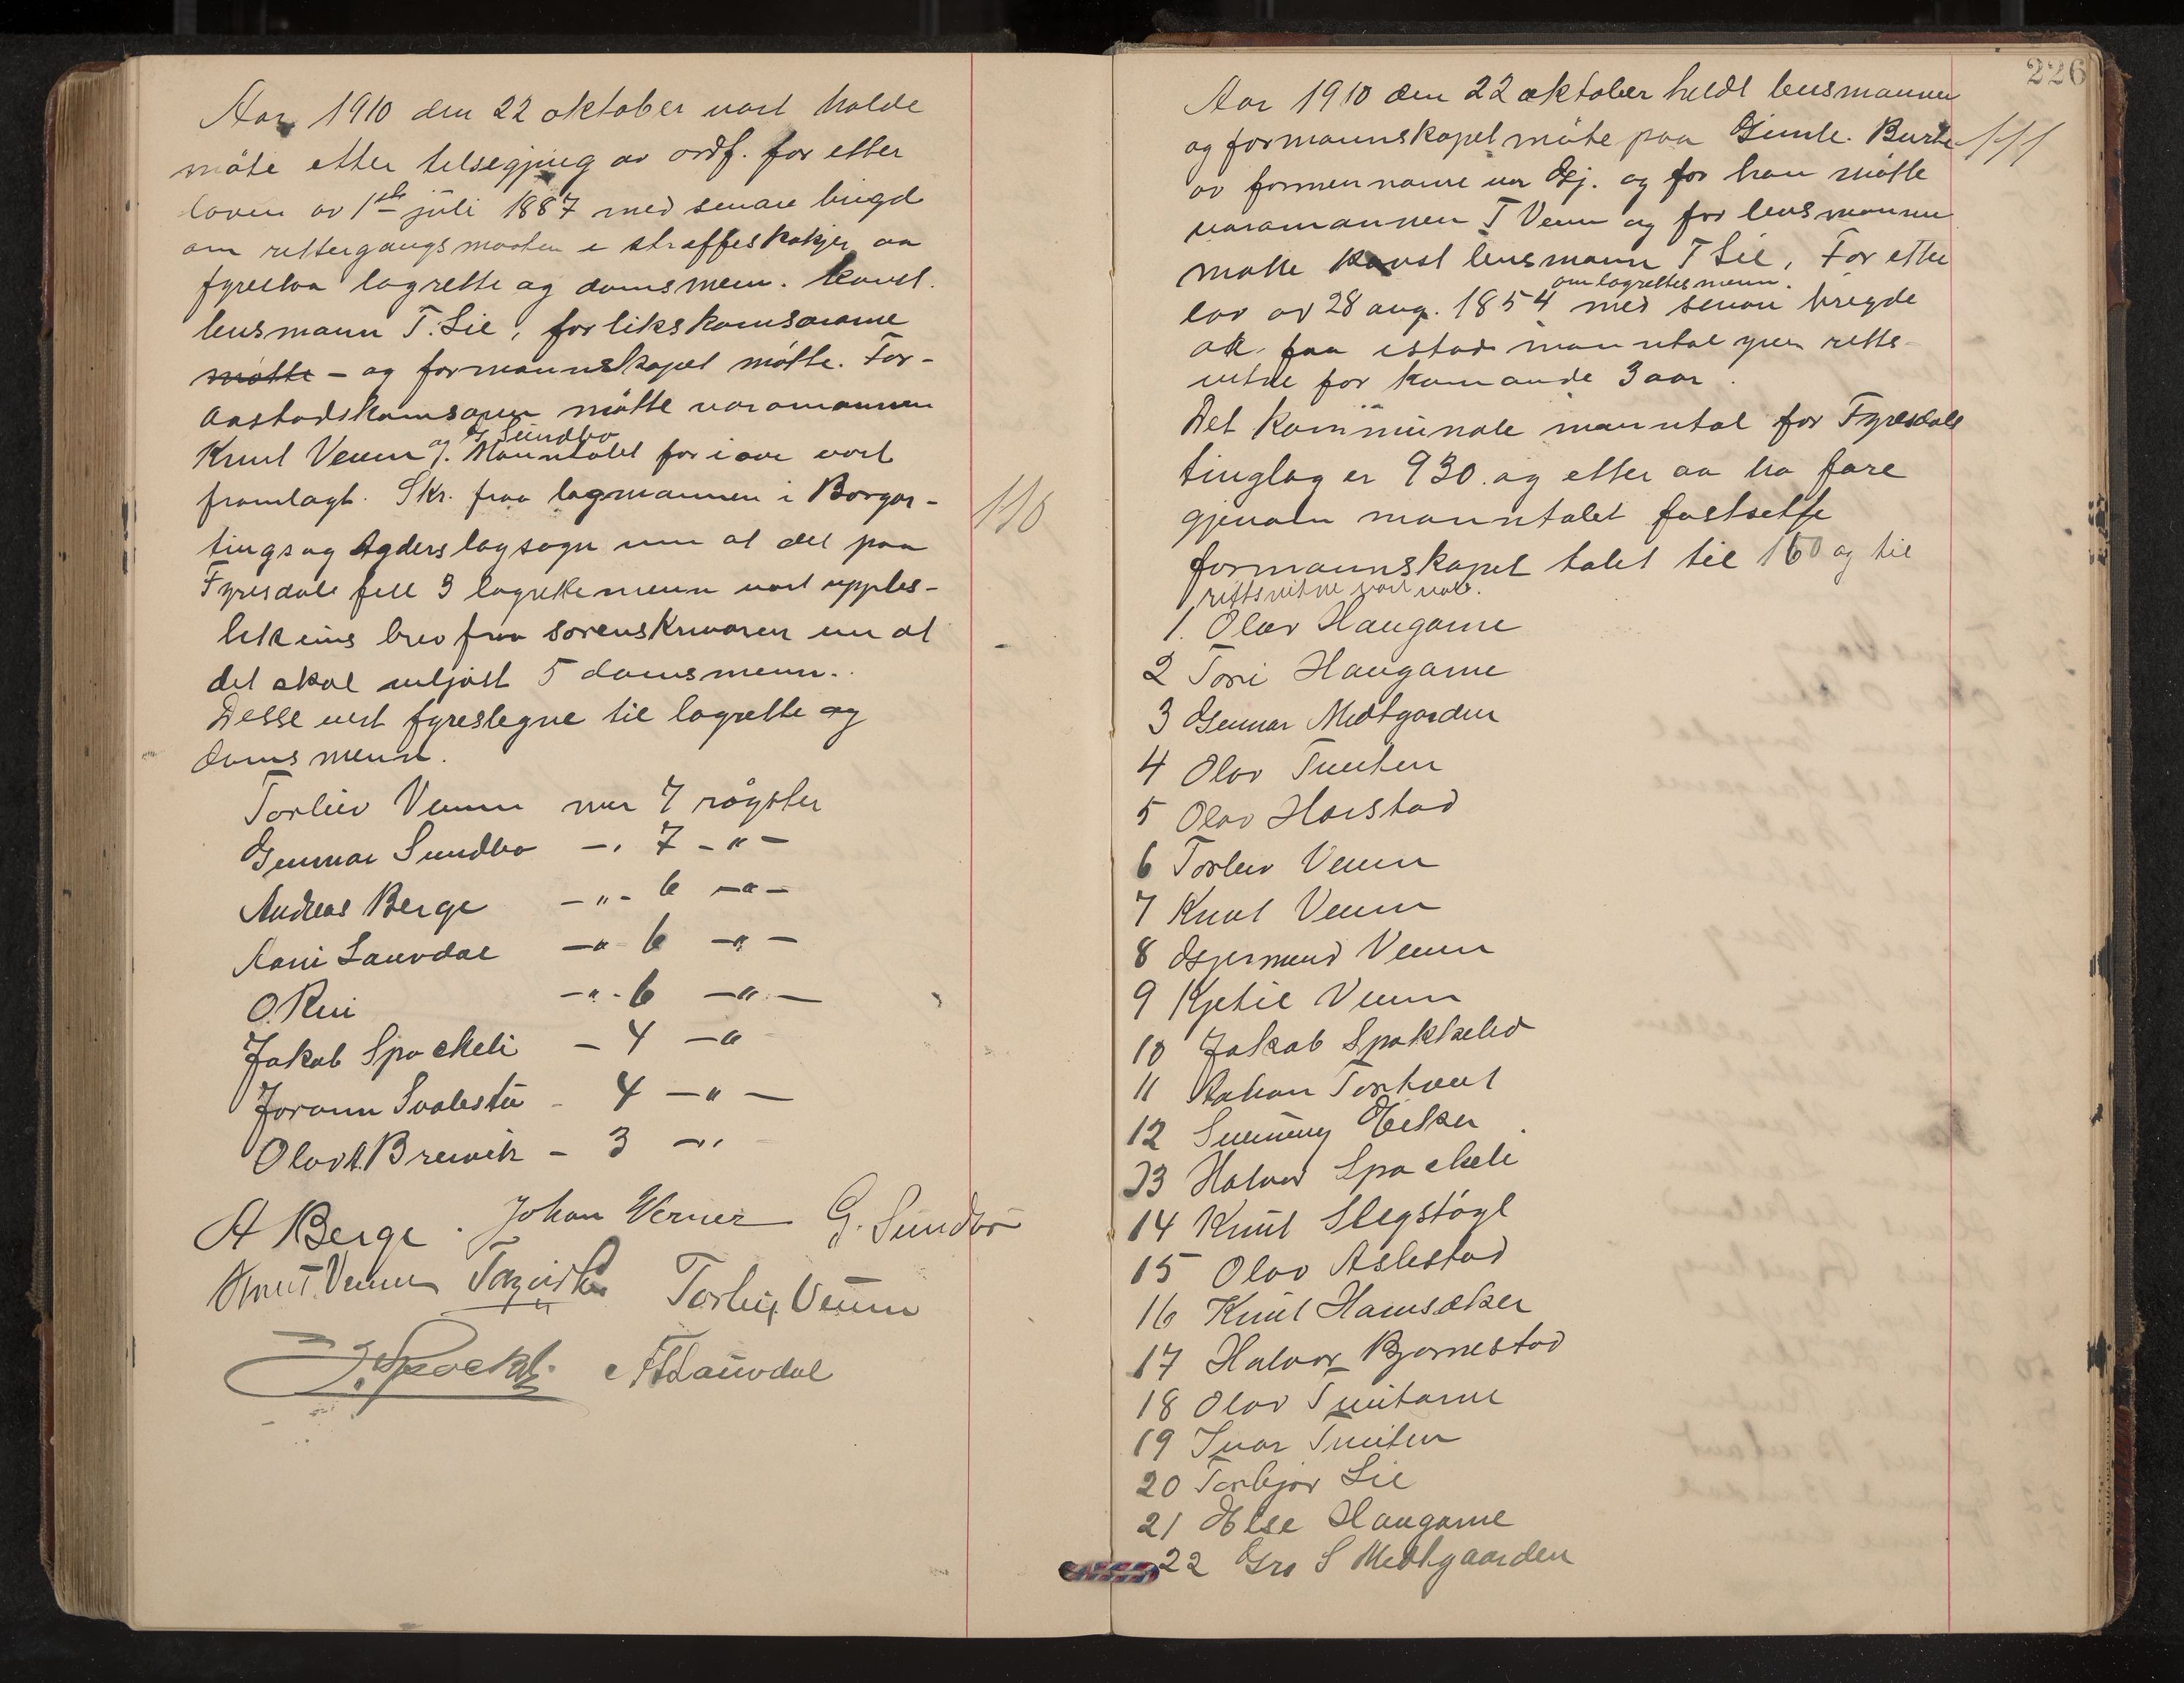 Aar 1910 den 22 oktober vart halde
møte etter tilsegjing av ordf. for etter
loven av 1ste juli 1887 med senare brigd
om rettergangsmaaten i straffesakjer aa
fyreslaa lagrette og domsmenn. Konst.
lensmann T. Lie, forlikskomsarane
møtte – og formannskapet møtte. For-
aastadskomsaren møtte varamannen
Knut Venn og G Sundbø. Manntalet for i aar vart
framlagt. Skr. fraa lagmannen i Borgar-
tings og Agders lagsogn um at det paa
Fyresdale fell 3 lagrettemenn vart upples-
likeins brev fraa sorenskrivaren um at
det skal veljast 5 domsmenn.
Desse vert fyreslegne til lagrette og
domsmenn.
Torleiv Venn med 7 røyster
Gunnar Sundbø –„ 7 –„–
Andreas Berge –„– 6 –„–
Aani Lauvdal –„ 6 –„–
O. Rui –„– 6 –„–
Jakob Spockeli – 4 –„
Joronn Svalestu – 4 –„–
Olav A. Breivik – 3 –„
110
A Berge. Johan Verner G. Sundbø
Knut Venn Torleiv Venn
J. Spockeli A Lauvdal
226
Aar 1910 den 22 oktober heldt lensmannen
og formannskapet møte paa Gimle. Burte
av formennane var Gj. og for han møtte
varamannen T Venn og for lensmannen
møtte konst lensmann T Lie. For etter
om lagrettesmenn.
lov av 28 aug. 1854 med senare brigde
aa faa istad manntal yver retts-
vitne for komande 3 aar.
Det kommunale manntal for Fyresdale
tinglag er 930 og etter aa ha fare
gjenom manntalet fastsette
formannskapet talet til 160 og til
rettsvitne vart vald.
111
1. Olav Haugarne
2 Tone Haugarne
3 Gunnar Midtgarden
4 Olav Tveiten
5 Olav Harstad
6 Torleiv Venn
7 Knut Venn
8 Gjermund Venn
9 Kjetil Venn
10 Jakob Spokkelid
11 Torkvert
12 Eiker
13 Halvor Spockeli
14 Knut Slegstøyl
15 Olav Aslestad
16 Knut Hamsæker
17 Halvor Bjørnestad
18 Olav Tveitane
19 Ivar Tveiten
20 Torbjør Lie
21 Else Haugarne
22 Gro S Midtgaarden